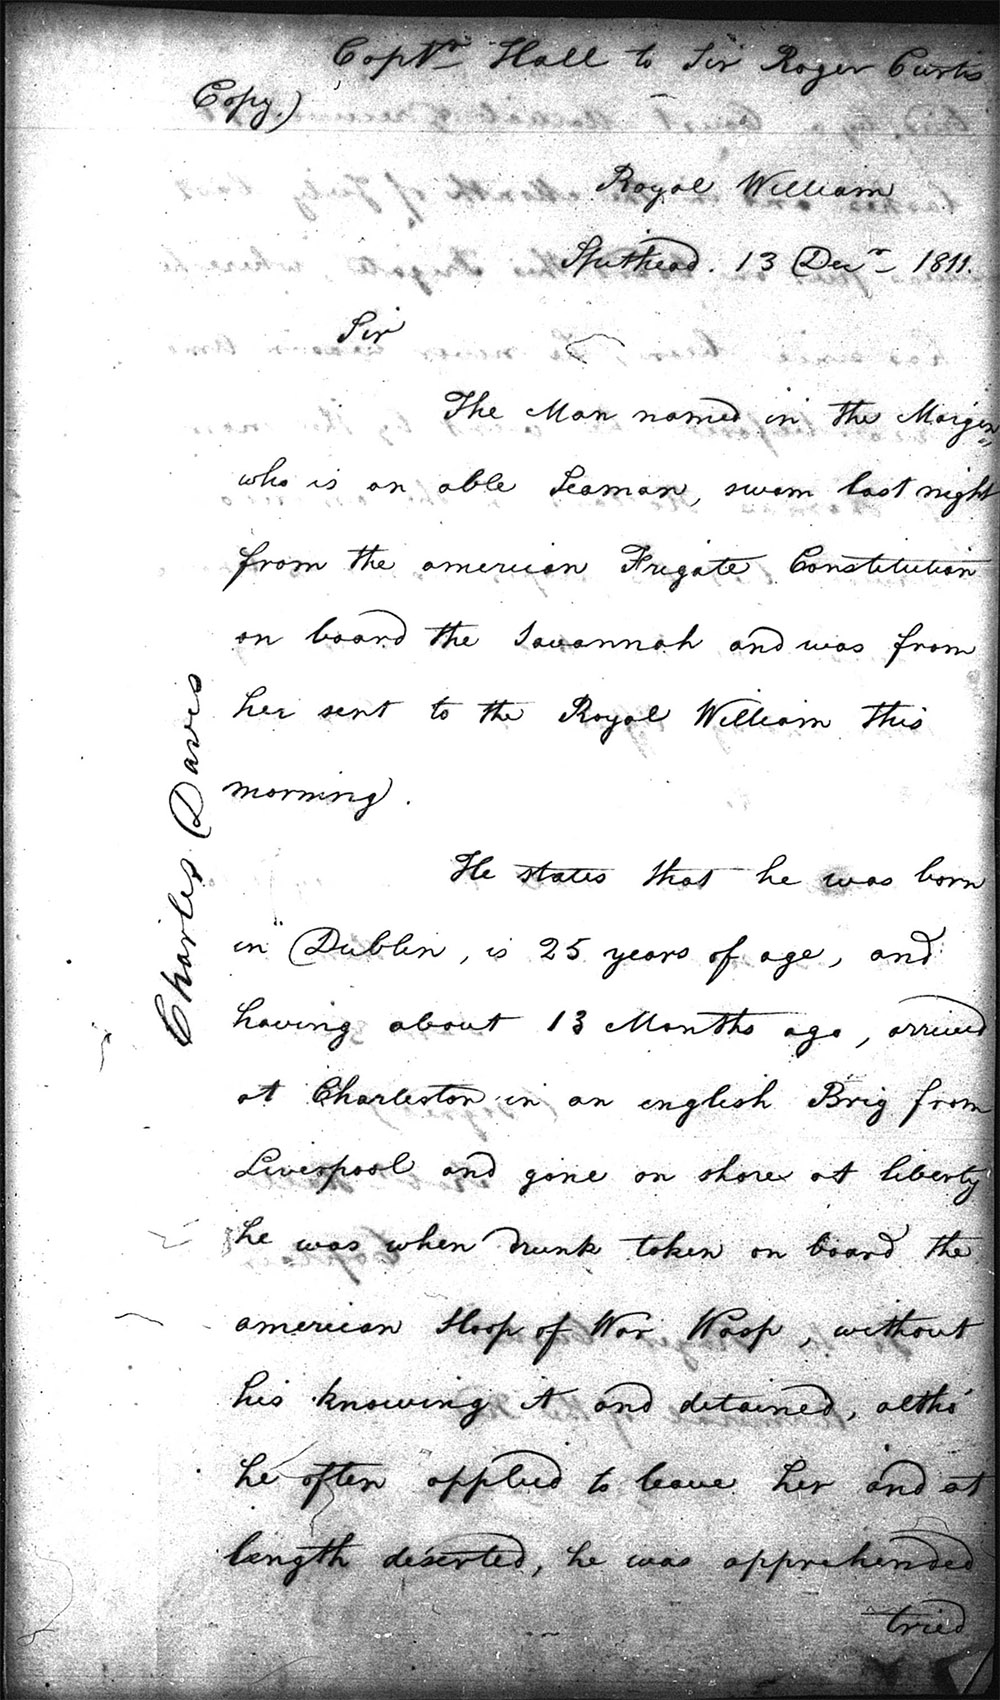 Captn Hall to Sir Roger Curtis
Copy.)
Royal William
Spithead. 13 Decr 1811.
Sir
The Man named in the Margin
who is an able Seaman, swam last night
from the american Frigate Constitution
on board the Savannah and was from
her sent to the Royal William this
morning.
Charles Davis
He states that he was born
in Dublin, is 25 years of age, and
having about 13 Months ago, arrived
at Charleston in an english Brig from
Liverpool and gone on shore at liberty
he was when drunk taken on board the
american Sloop of War Wasp, without
his knowing it and detained, altho'
he often applied to leave her and at
length deserted, he was apprehended
tried